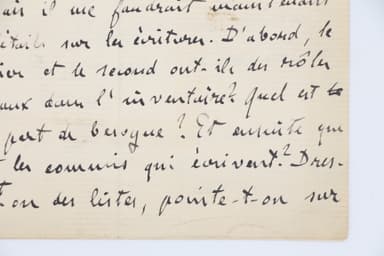 il me faudrait maintenant
étails sur les écritures. D'abord, le
ier et le second ont-ils des rôles
aux dans l'inventaire? Quel est le
part de besogne? Et ensuite que
t les commis qui écrivent? Dres-
t-on des listes, pointe-t-on sur